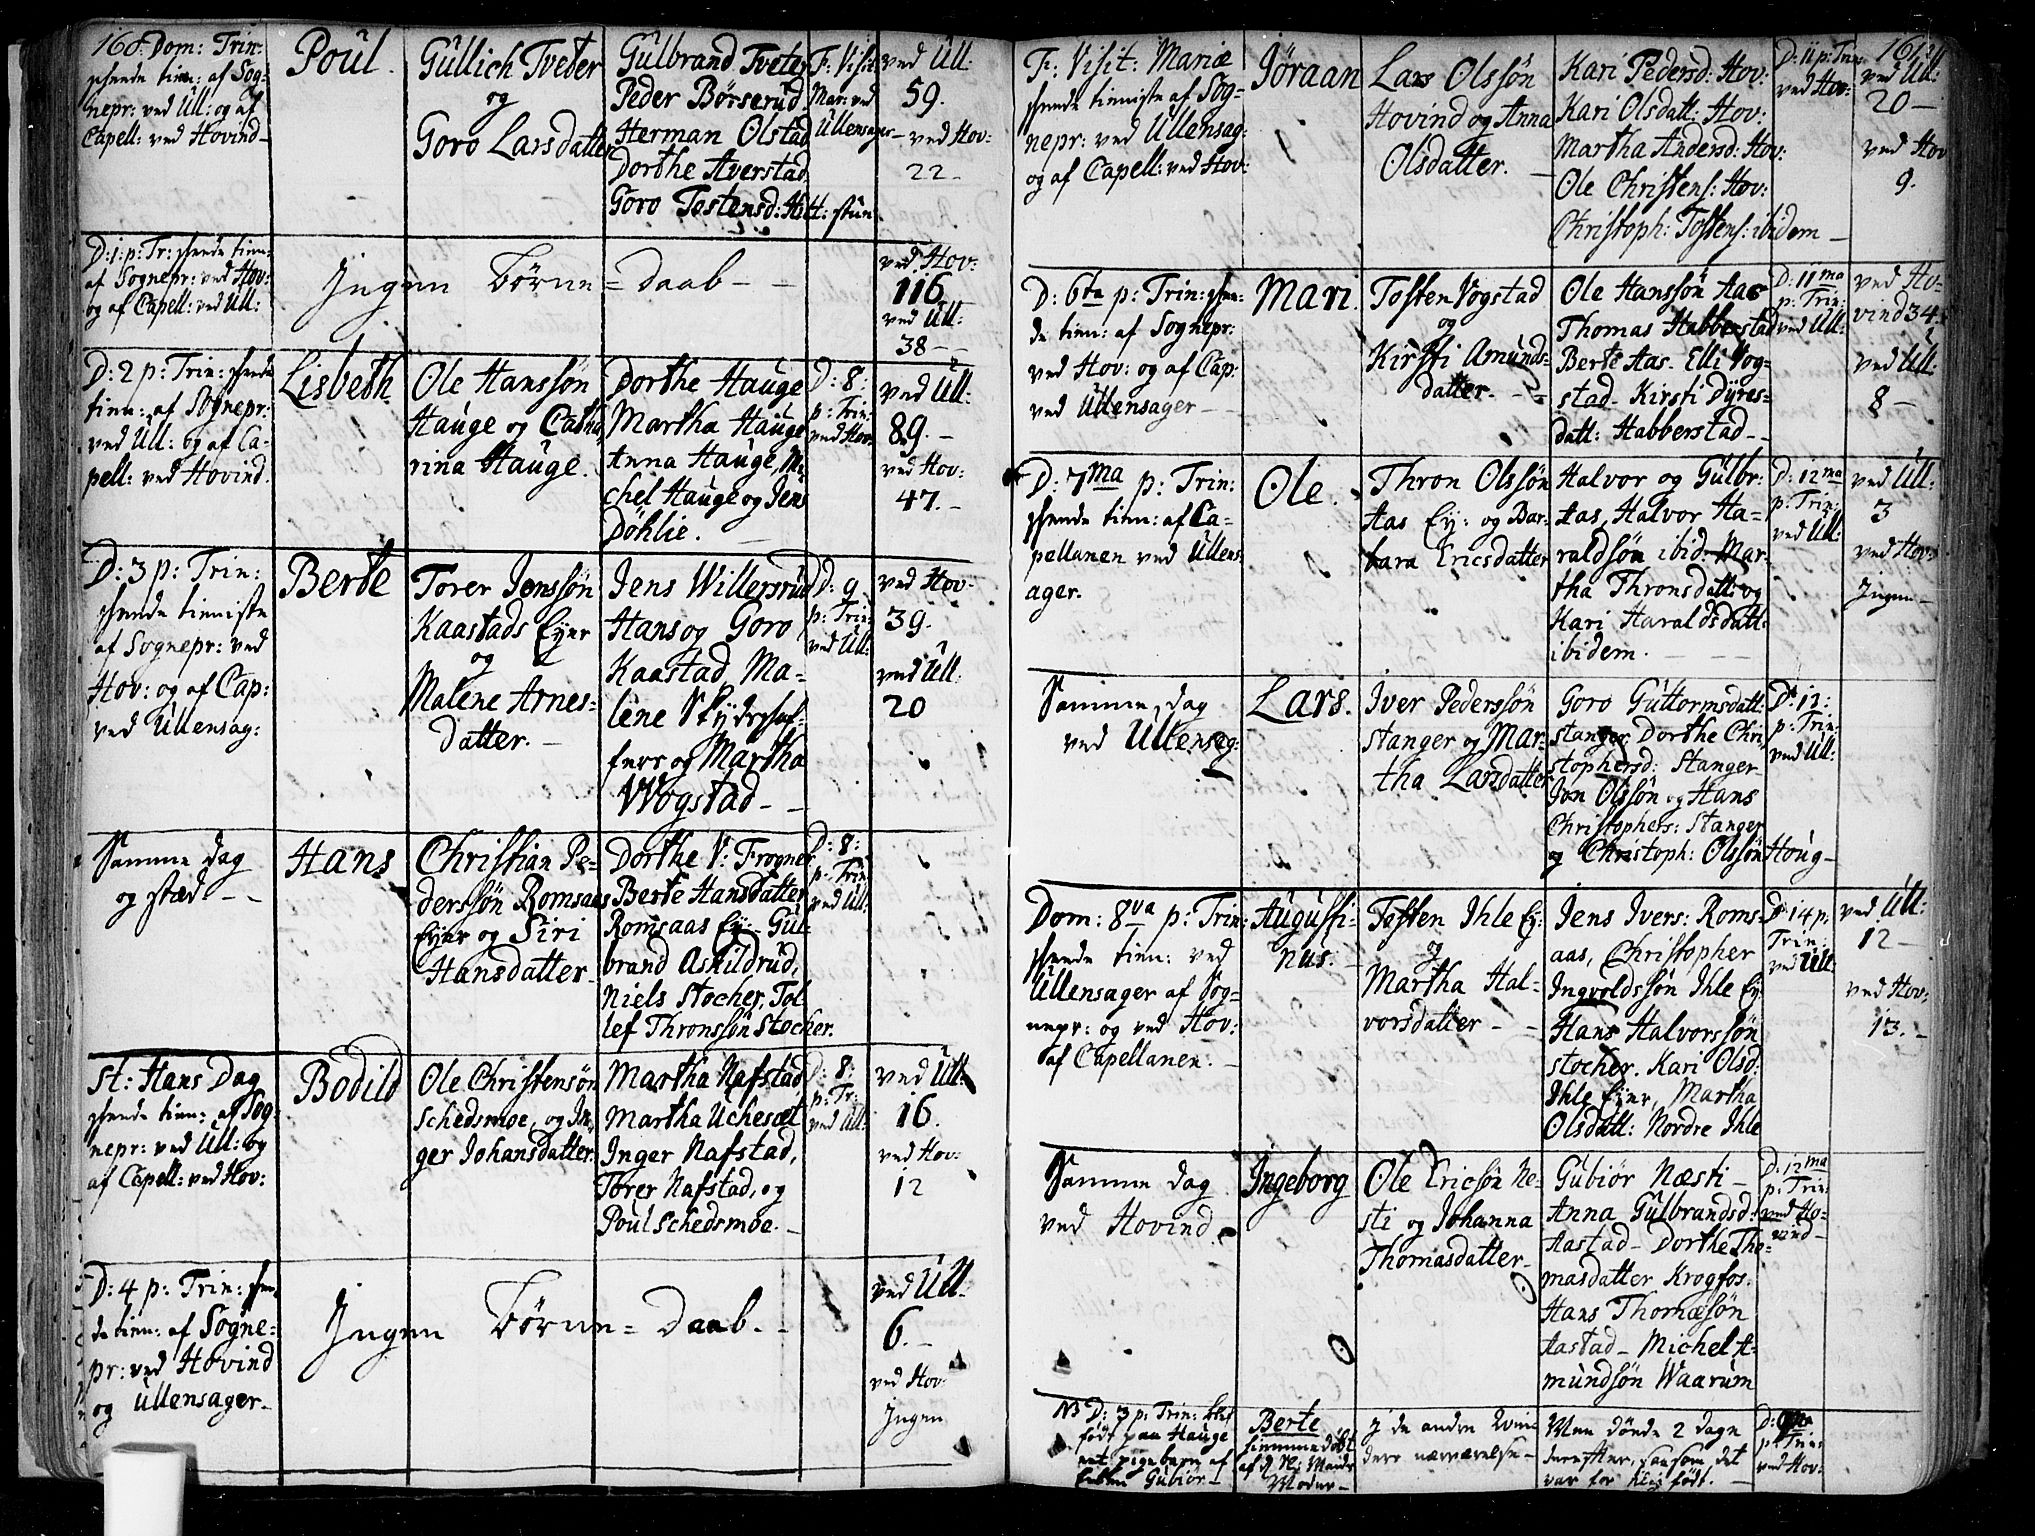 160.
Dom: Trin:
skeede tien: af Sog-
nepr: ved Ull: og af
Capell: ved Hovind-
Poul.
Gullich Tveter
og
Goro Larsdatter
Gulbrand Tveter
Peder Börserud
Herman Olstad
Dorthe Averstad
Goro Tostensd:
F: Visit:
Mar: ved
Ullensager-
ved Ull:
59.
ved Hov:
22-
D: 1: p: Tr: skeede tien:
af Sognepr: ved Hov:
og af Capell: ved Ull:
Ingen Börne=daab--
ved Hov:
116
ved Ull:
38--
D: 2 p: Trin: skeede
tien: af Sognepr:
ved Ull: og af Ca-
pell: ved Hovind.
Lisbeth.
Ole Hanssön
Hauge og Catha-
rina Hauge.
Dorthe Hauge
Martha Hauge
Anna Hauge, Mi-
chel Hauge og Jens
Döhlie.
D: 8:
p: Trin:
ved Hov:
ved Ull:
89.-
ved Hov:
47.-
D: 3 p: Trin:
skeede tienniste
af Sognepr: ved
Hov: og af Cap:
ved Ullensag:
Berte
Torer Jenssön
Kaastads Eyer
og
Malene Arnes-
datter.-
Jens Willersrud
Hans og Goro
Kaastad, Ma-
lene
og Martha
Wogstad-
D: 9
p: Trin:
ved Ull:
ved Hov:
39.
ved Ull:
20
Samme dag
og stæd--
Hans
Christian Pe-
derssön Romsaas
Eyer og Siri
Hansdatter
Dorthe V: Frogner
Berte Hansdatter
Romsaas Ey:- Gul-
brand Askildrud,
Niels Stocher, Tol-
lef Thronssön Stocher.
D: 8:
p: Trin:
ved Ull:
St: Hans Dag
skeede tien: af Sog-
nepr: ved Ull: og
af Capell: ved Hov:
Bodild
Ole Christensön
Schedsmoe, og In-
ger Johansdatter.
Martha Nafstad,
Martha Uchesæt,
Inger Nafstad,
Torer Nafstad, og
Poul Schedsmoe.-
D: 8:
p: Tr:
ved Ull:
ved Ull:
16.
ved Hov:
12
D: 4 p: Trin: skee-
de tien: af Sogne-
pr: ved Hovind
og Ullensager-
Ingen Börne=Daab.-
ved Ull:
6.-
ved Hov:
Ingen
161
F: Visit: Mariæ
skeede tienniste af Sog-
nepr: ved Ullensag:
og af Capell: ved Hov:
Jöraan
Lars Olssön
Hovind og Anna
Olsdatter.-
Kari Pedersd: Hov:
Kari Olsdatt: Hov:
Martha Andersd: Hov:
Ole Christens: Hov:
Christoph: Tostens: ibidem-
D: 11 p: Trin:
ved Hov:
ved Ull:
20-
ved Hov
9.
D: 6ta p: Trin: skee-
de tien: af Sognepr:
ved Hov: og af Cap:
ved Ullensager--
Mari.
Tosten Vogstad
og
Kirsti Amunds-
datter.--
Ole Hanssön Aas
Thomas Habberstad
Berte Aas. Elli Vog-
stad- Kirsti Dyres-
datt: Habberstad--
D: 11ma
p: Trin:
ved Ull:
ved Ho-
vind 34.
ved Ull:
8-
D: 7ma p: Trin:
skeede tien: af Ca-
pellanen ved Ullens-
ager.
Ole.
Thron Olssön
Aas Ey: og Bar-
bara Ericsdatter
Halvor og Gulbr:
Aas, Halvor Ha-
raldsön ibid: Mar-
tha Thronsdatt: og
Kari Haraldsdatt:
ibidem.---
D: 12ma
p: Trin:
ved Ull:
ved Ull:
3
ved Hov:
Ingen-
Samme dag
ved Ullensag:
Lars.
Iver Pederssön
Stanger og Mar-
tha Larsdatter
Goro Guttormsdatt:
Stanger, Dorthe Chri-
stophersd: Stanger-
Jon Olssön og Hans
Christophers: Stanger
og Christoph: Olssön Houg-
D: 12:
p: Trin:
ved Ull:
Dom: 8va p: Trin:
skeede tien: ved
Ullensager af Sog-
nepr: og ved Hov:
af Capellanen.-
Augusti-
nus.
Tosten Ihle Ey:
og
Martha Hal-
vorsdatter--
Jens Ivers: Roms-
aas, Christopher
Ingvoldssön Ihle Ey
Hans Halvorssön
Stocher. Kari Olsd:
Ihle Eyer, Martha
Olsdatt: Nordre Ihle
D: 14 p:
Trin:
ved Ull:
ved Ull:
12-
ved Hov:
13.-
Samme dag
ved Hovind.
Ingeborg
Ole Ericsön Ne-
sti og Johanna
Thomasdatter-
Gubiör Næsti-
Anna Gulbrandsd:
Aastad- Dorthe Tho-
masdatter Krogfos.
Hans Thomæsön
Aastad- Michel A-
mundsön Waarum
D: 12ma
p: Trin:
ved Ho-
vind-
NB D: 3 p: Trin: blef
födt paa Hauge
et pigebarn af
Gubiör-
Berte
hiemmedöbt
af
Moder-
I de andre Qvin-
ders nærværelse-
Men döde 2 dage
derefter, saasom det
var for födt.-
D:
p: Trin:
ved Hov: